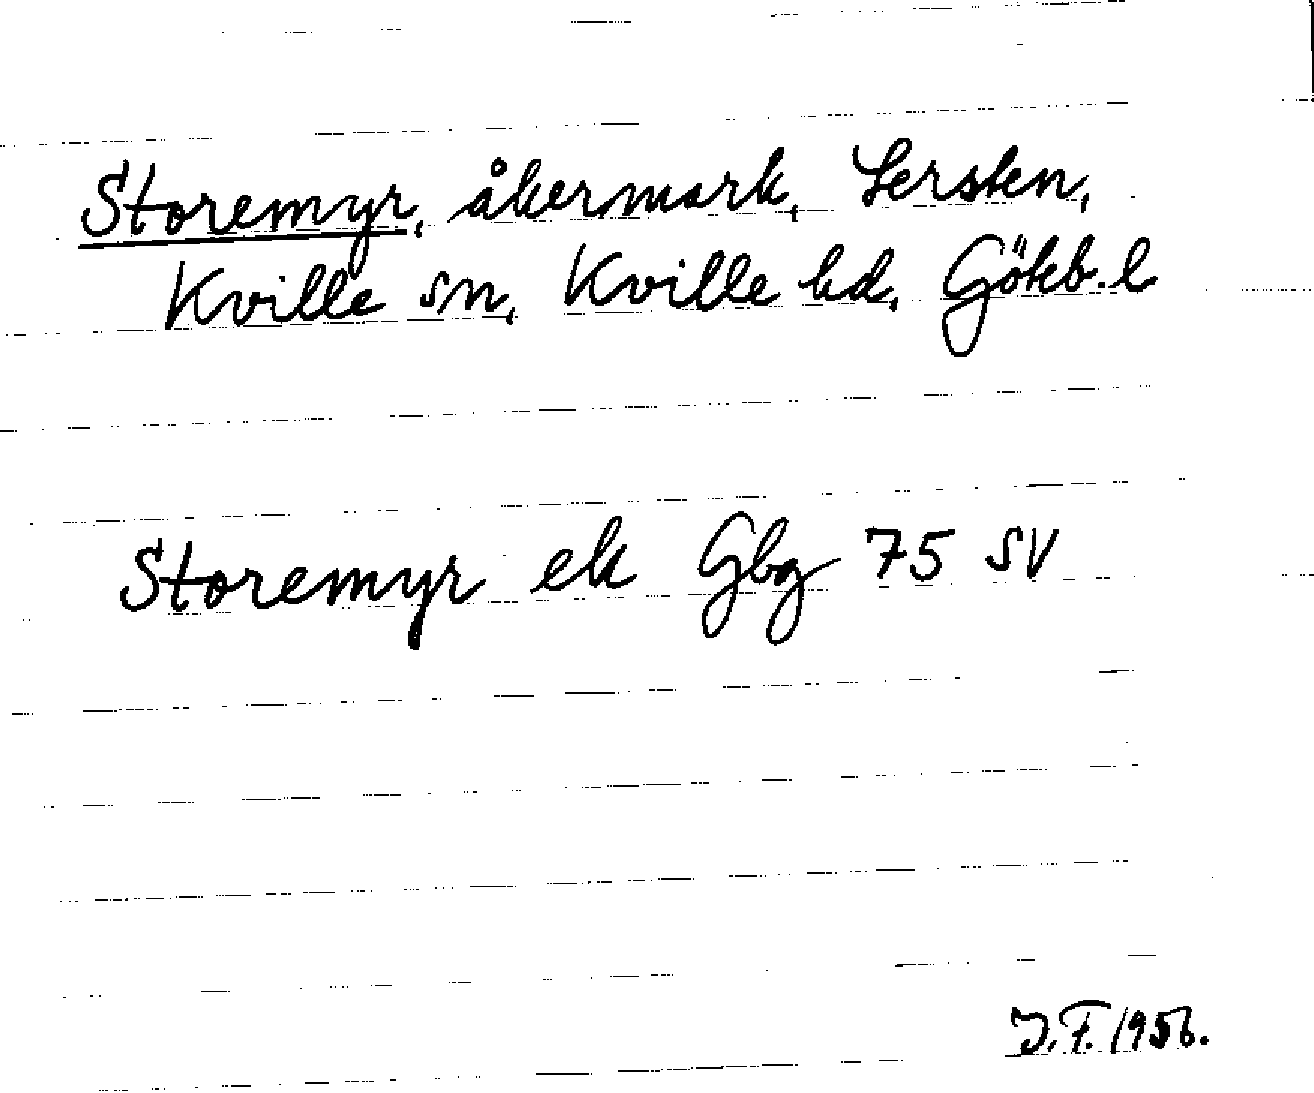 Storemyr, åkermark, Lersten,
Kville sn, Kville hd, Gökb. l
Storemyr ek Gbg 75 SV
J.F. 1956.